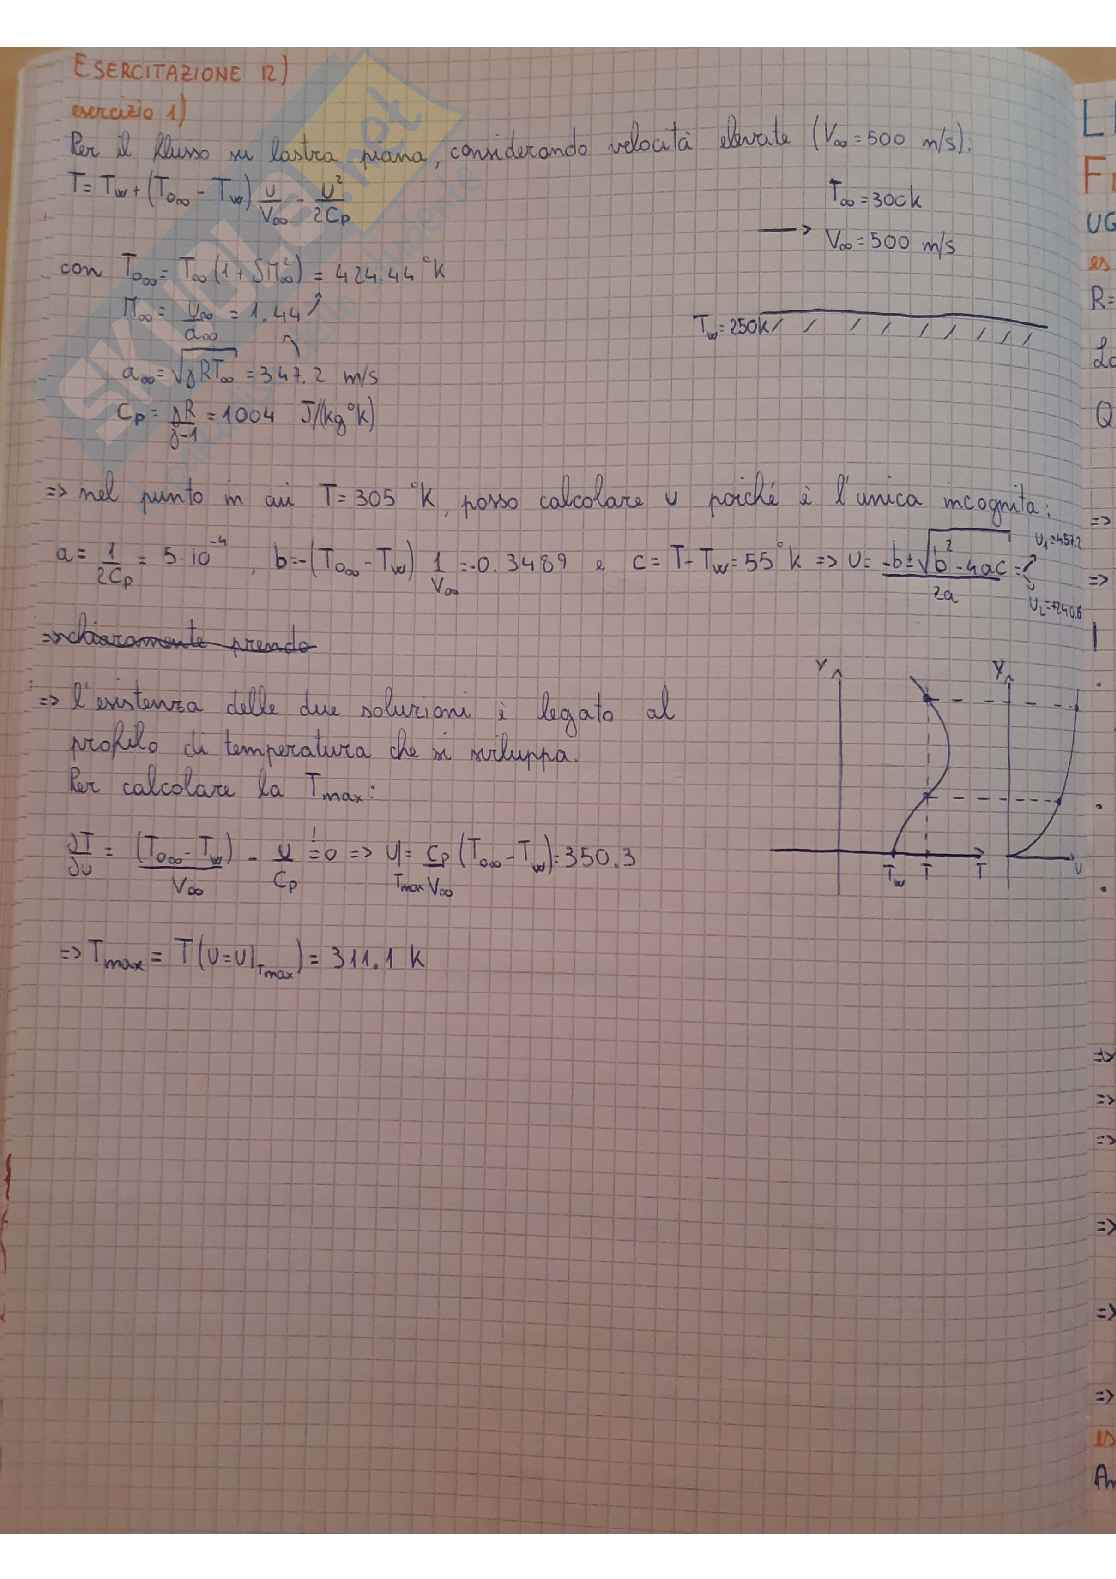 ESERCITAZIONE 12)
esercizio 1)
Per il flusso su lastra piana, considerando velocità elevate (V∞ = 500 m/s):
T = Tw + (T0∞ - Tw) u/V∞ - u²/2Cp
T∞ = 300K
V∞ = 500 m/s
Tw = 250K
con T0∞ = T∞(1 + δM∞²) = 424.44 °K
M∞ = u∞/a∞ = 1.44
a∞ = √γRT∞ = 347.2 m/s
Cp = γR/γ-1 = 1004 J/(kg°K)
=> nel punto in cui T = 305 °K, posso calcolare u poiché è l'unica incognita:
a = 1/2Cp = 5·10⁻⁴, b = -(T0∞ - Tw) 1/V∞ = -0.3489 e c = T - Tw = 55 °K => u = -b±√b²-4ac/2a = u₁=457.2
u₂=+240.6
=> chiaramente prendo
=> l'esistenza delle due soluzioni è legato al
profilo di temperatura che si sviluppa.
Per calcolare la Tmax:
∂T/∂u = (T0∞ - Tw)/V∞ - u/Cp != 0 => u|Tmax = Cp/V∞ (T0∞ - Tw) = 350.3
=> Tmax = T(u = u|Tmax) = 311.1 K
Y
Y
Tw T T
u
L
F
UG
es
R=
Q
=>
=>
=>
=>
=>
=>
=>
=>
es
SKUOLA.net